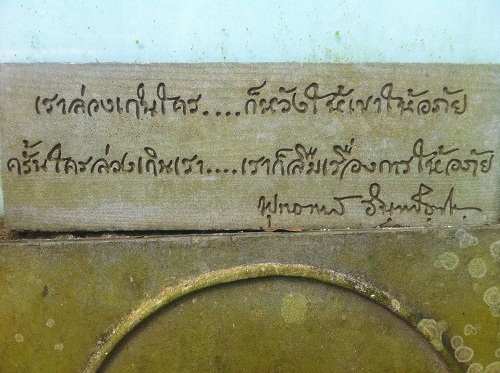 เราล่วงเกินใคร....ก็หวังให้เขาให้อภัย
ครั้นใครล่วงเกินเรา....เราก็ลืมเรื่องการให้อภัย
พุทธทาส อินทปัญโญ